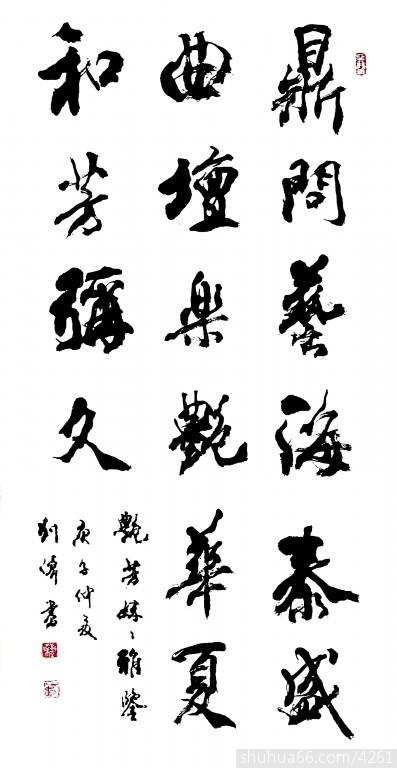 鼎問藝海泰盛
曲壇樂艷華夏
和芳彌久
艷芳妹妹雅鑒
庚子仲夏
劉濤書
shuhua66.com/4261